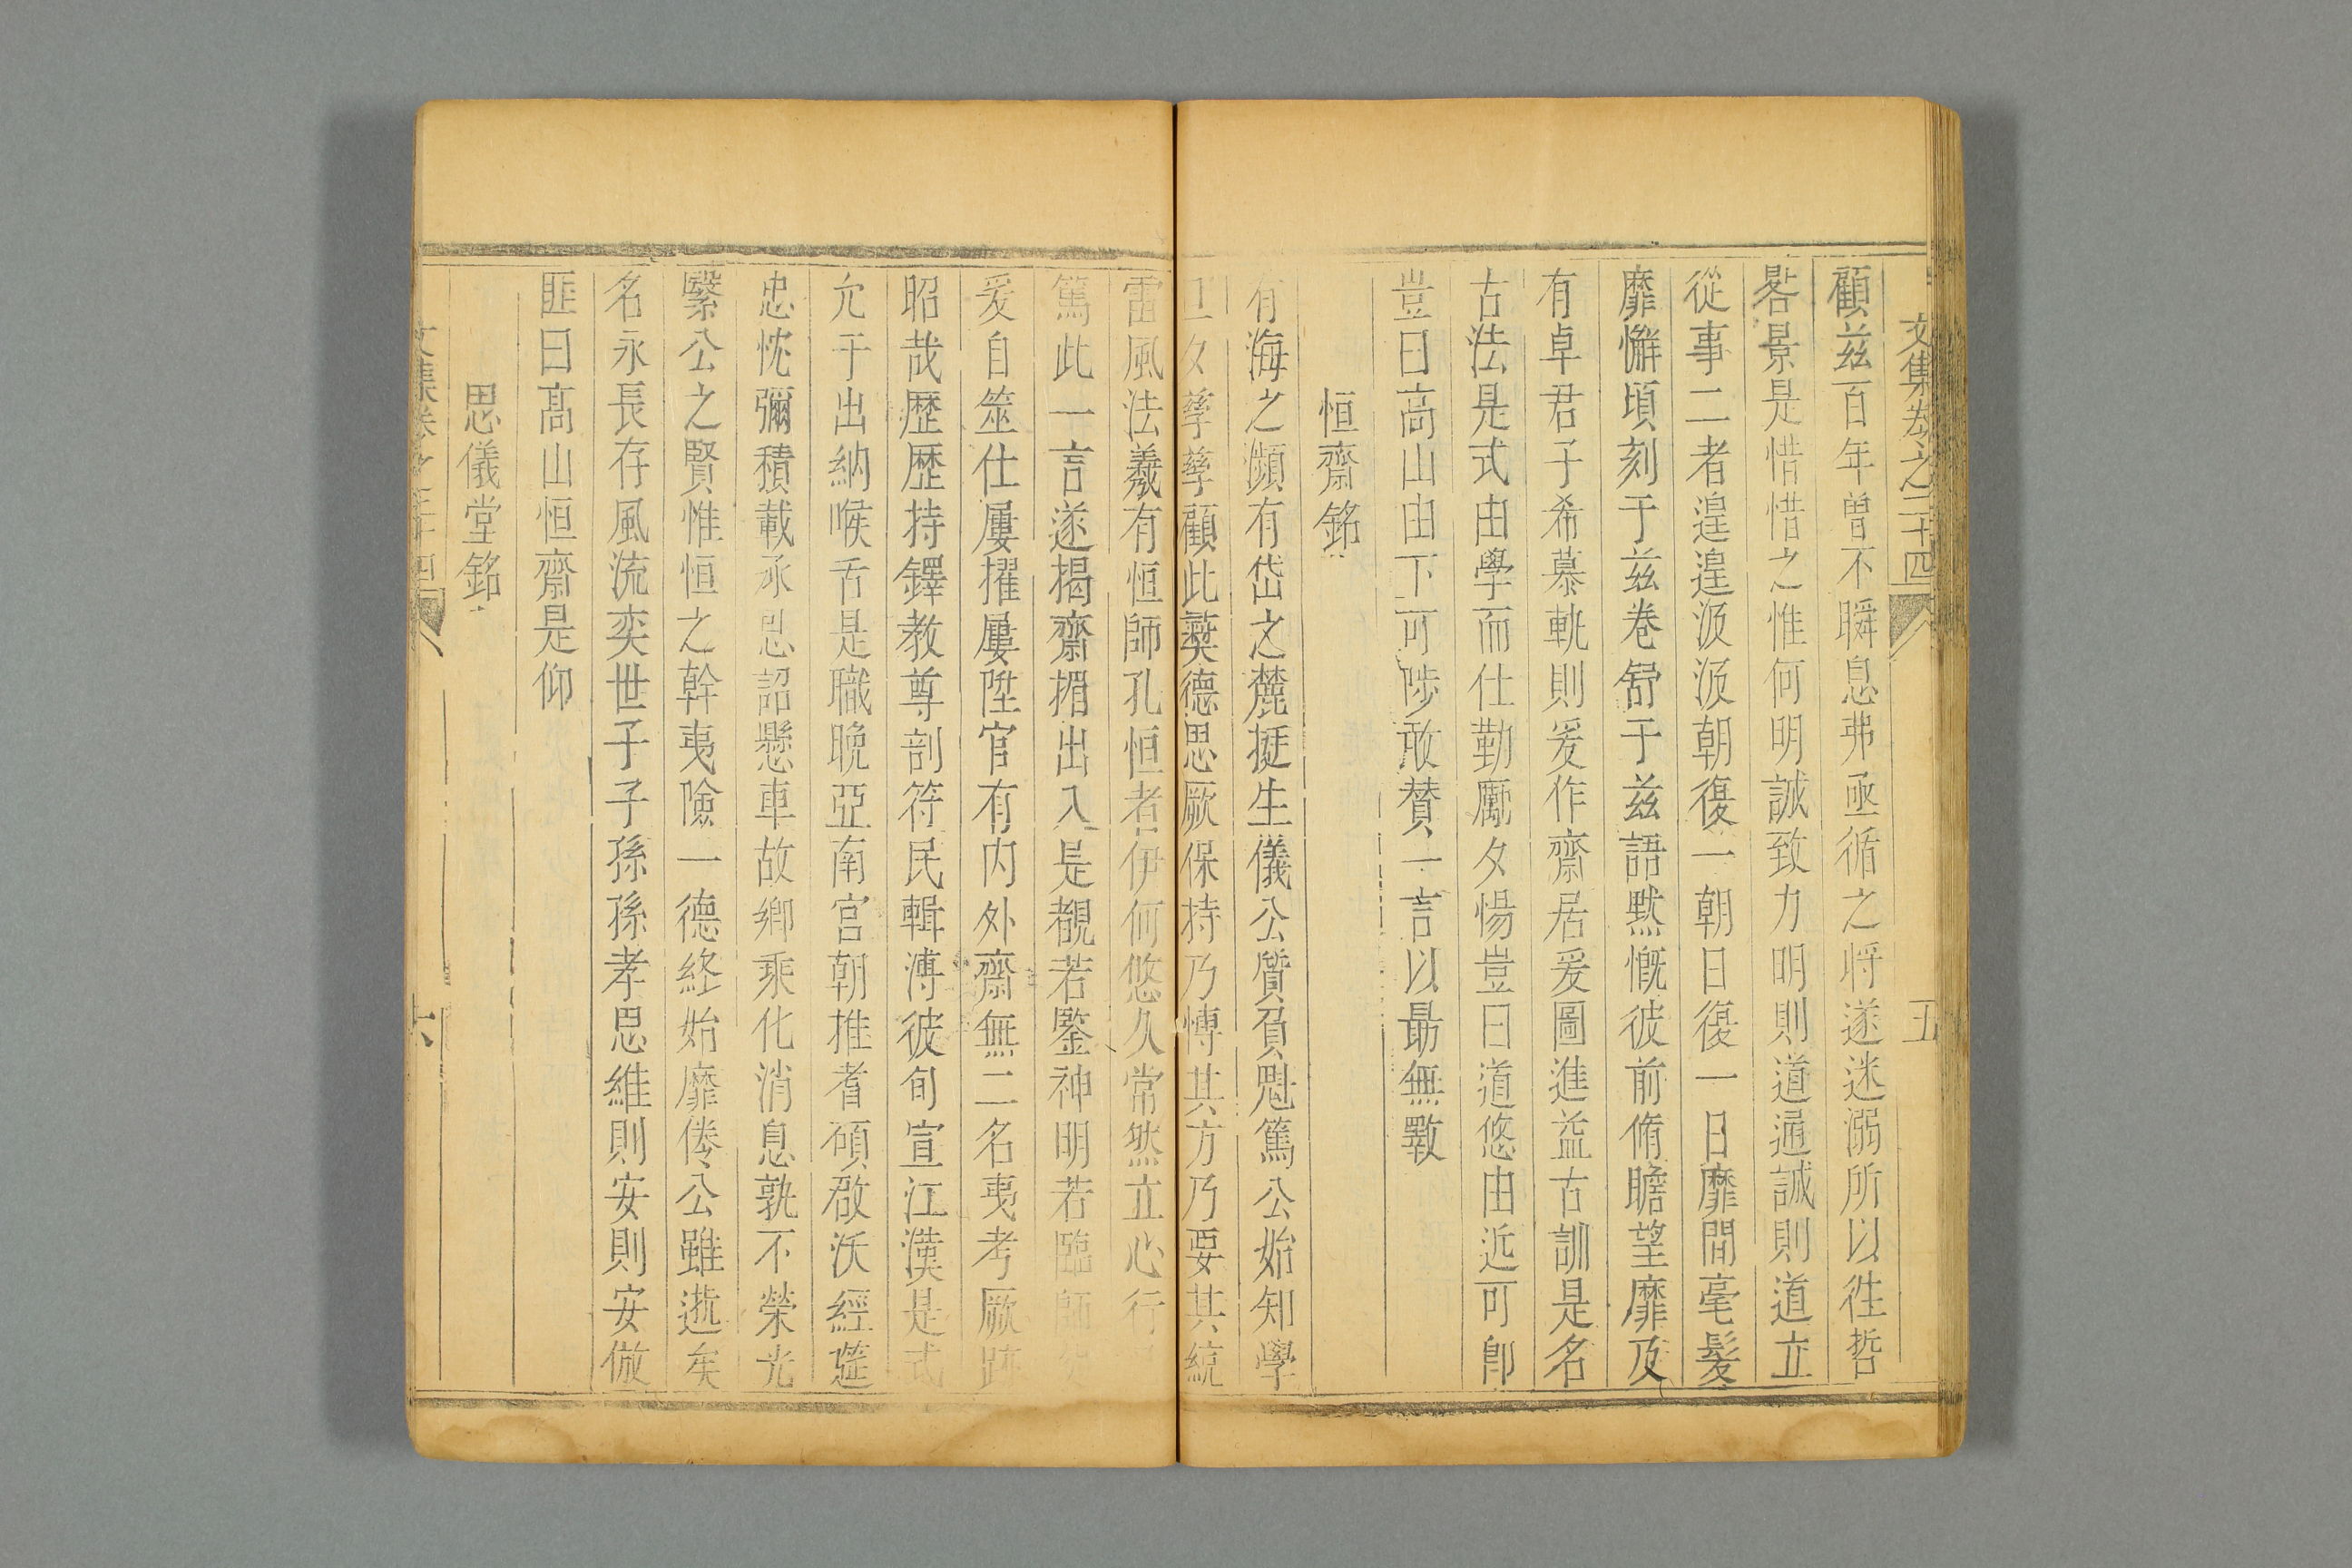 文集卷之二十四
五
顧茲百年曾不瞬息弗亟循之將遂迷溺所以徃哲
晷景是惜惜之惟何明誠致力明則道通誠則道立
從事二者遑遑汲汲朝復一朝日復一日靡間毫髮
靡懈頃刻于茲卷舒于茲語默慨彼前脩瞻望靡及
有卓君子希慕軌則爰作齋居爰圖進益古訓是名
古法是式由學而仕勤勵夕惕豈曰道悠由近可卽
豈曰高山由下可陟敢賛一言以勗無斁
恒齋銘
有海之瀕有岱之麓挺生儀公質負魁篤公始知學
夕孳孳顧此彛德思厥保持乃慱其方乃要其統
雷風法羲有恒師孔恒者伊何悠久常然立心行
篤此一言遂揭齋楣出入是覩若鑒神明若臨師
爰自筮仕屢擢屢陞官有内外齋無二名夷考厥跡
昭哉歴歴持鐸教尊剖符民輯溥彼旬宣江漢是式
允于出納喉舌是職晚亞南宮朝推耆碩啟沃經筵
忠忱彌積載承恩詔懸車故鄉乘化消息孰不榮光
繄公之賢惟恒之幹夷險一德終始靡倦公雖逝矣
名永長存風流奕世子子孫孫孝思維則安則安倣
匪曰髙山恒齋是仰
思儀堂銘
文集卷之二十四
六